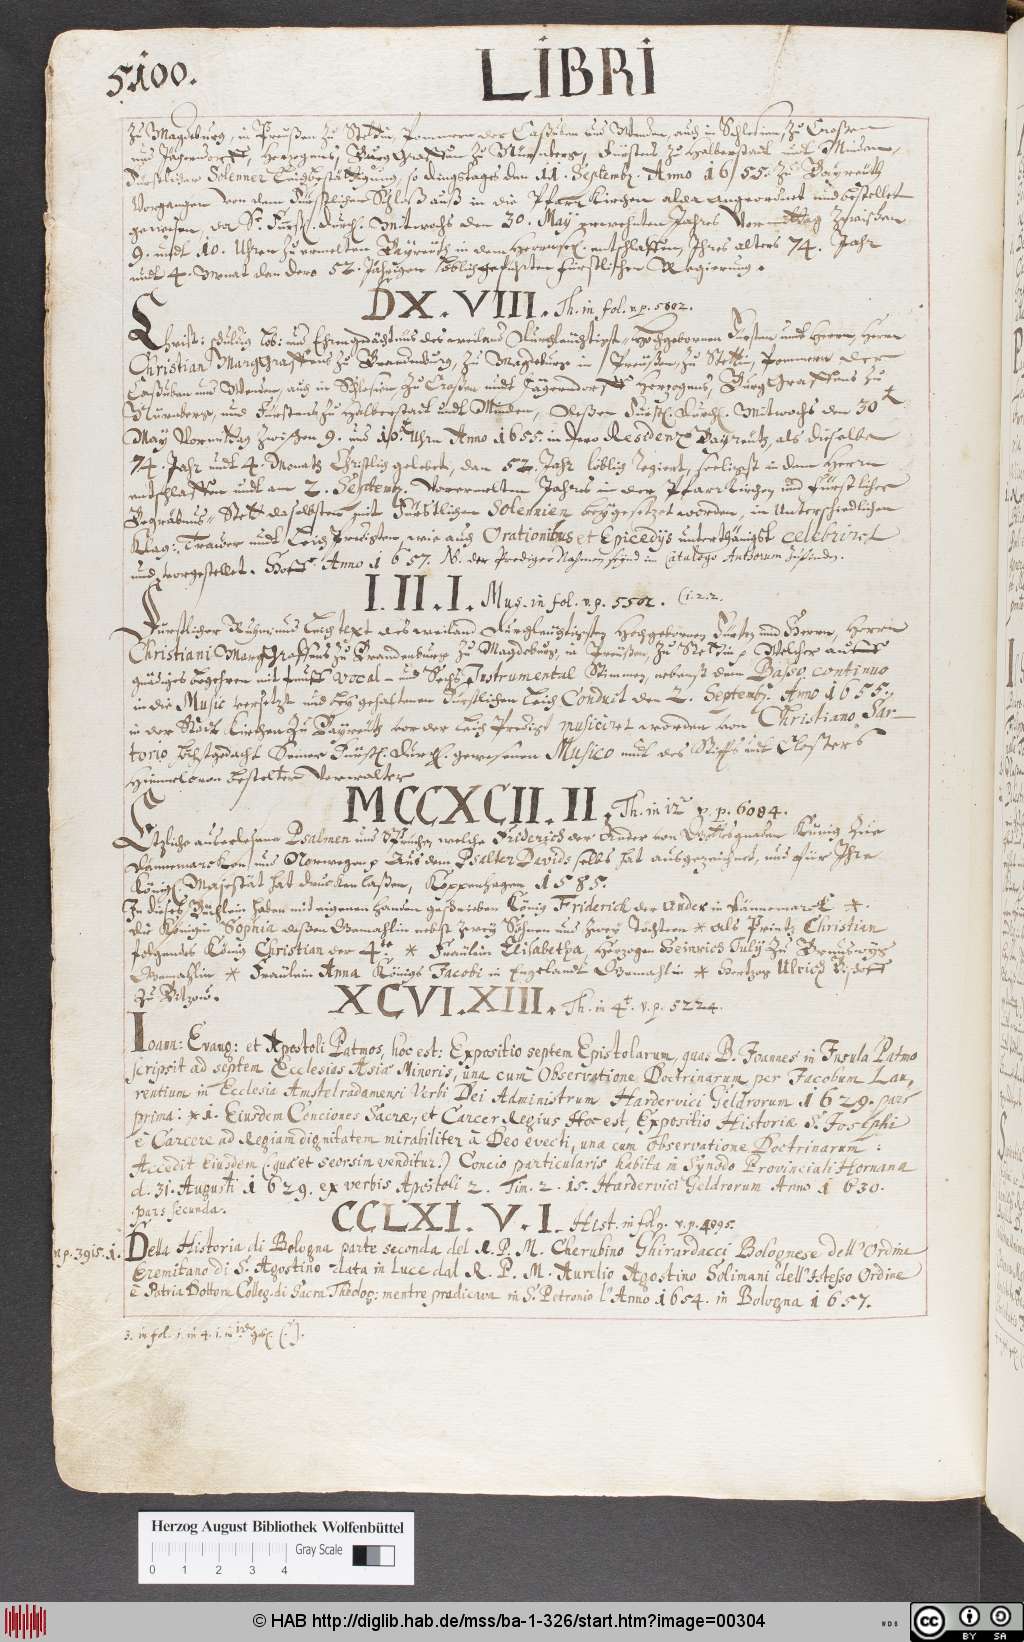 5100.
LIBRI
zu Magdeburg, in Preußen zu Stettin, Pommern der Caßuben und Wenden, auch in Schlesien, zu Croßen
und Jägerndorff, Hertzogens, Burggraffen zu Nürnberg, Fürstens zu Halberstadt undt Minden,
Fürstlicher Solenner Leichbestättigung, so Dingstages den 11. Septemb. Anno 1655. zu Bayreuth
Vorgangen von dem Fürstlichen Schloß auß in die Pfarrkirchen alda angeordnet und bestellet
gewesen, da Sr. Fürstl. Durchl. Mitwochs den 30. May Jahres Vormittag zwischen
9. undt 10. Uhren zu Bayreuth in dem Herrn entschlaffen, Ihres alters 74. Jahr
undt 4. Monat den dero 52. Jährigen löblich geführten Fürstlichen Regierung.
DX.VIII. Th. in fol. v. p. 5802.
Christ: schuldig Lob: und Ehrengedächtnus des weiland Durchleuchtigst- Hochgebornen Fürsten undt Herrn, Herrn
Christian Marggraffens zu Brandenburg, zu Magdeburg in Preußen, zu Stettin, Pommern der
Caßuben und Wenden, auch in Schlesien zu Croßen undt Jägerndorff Hertzogens, Burggraffens zu
Nürnberg, und Fürstens zu Halberstadt undt Minden, Deßen Fürstl. Durchl. Mitwochs den 30
May Vormittag zwischen 9. und 10. Uhrn Anno 1655. in dero Residentz Bayreuth, als dieselbe
74. Jahr undt 4. Monath Christlich gelebet, den 52. Jahr löblich Regiert, seeligst in dem Herrn
entschlaffen undt am 2. Septemb. Jahres in der Pfarrkirchen und Fürstlicher
Begräbnus- Stett daselbsten mit Fürstlichen Solennien beygesetzet worden, in Unterschiedlichen
Klag: Trauer undt Leich Predigten, wie auch Orationibus et Epicedijs unterthänigst celebriret
und vorgestellet. Hoff Anno 1657. N. der Prediger Nahmen seynd in Catalogo Authorum zu finden.
I.II.I. Mus. in fol. v. p. 5502. (i. 2. 2.
Fürstlicher Ruhm: und Leich text des weiland Durchleuchtigsten Hochgebornen Fürsten und Herrn, Herrn
Christiani Marggraffens zu Brandenburg zu Magdeburg, in Preußen, zu Stettin p Welcher auf
gnädiges begehren mit fünff Vocal- und Sechs Instrumental Stimmen, nebenst dem Basso continuo
in die Music versetzt und bey gehaltenen Fürstlichen Leich Conduct den 2. Septemb. Anno 1655.
in der Stadt Kirchen zu Bayreuth vor der Leich Predigt musiciret worden von Christiano Sar-
torio, Höchstgedacht Seiner Fürstl. Durchl. gewesenen Musico undt des Stiffts undt Closters
Himmelcron bestelten Verwalter
MCCXCII.II. Th. in 12 v. p. 6084.
Etzliche auserlesene Psalmen und Sprüche, welche Friderich der Ander von Gottes gnaden König zue
Dannemarcken und Norwegen p Aus dem Psalter Davids selbs hat ausgezeichnet, und für Ihre
Königl. Majestät hat drucken laßen, Koppenhagen 1585.
In dieses Büchlein haben mit eigenen handen geschrieben König Friderich der Ander in Dännemarck *
die Königin Sophia deßen Gemahlin nebst zwey Söhnen und zwey Töchtern * als Printz Christian
folgends König Christian der 4te * Fräulein Elisabetha, Hertzogen Heinrich Julij zu Braunschweig
Gemahlin * Fräulein Anna Königs Jacobi in Engelandt Gemahlin * Hertzog Ulrich Bischoff
zu Bützow.
XCVI.XIII. Th. in 4t. v. p. 5224.
Ioann: Evang: et Apostoli Patmos, hoc est: Expositio septem Epistolarum, quas D. Joannes in Insula Patmo
scripsit ad septem Ecclesias Asiæ Minoris, una cum Observatione Doctrinarum per Jacobum Lau,
rentium in Ecclesia Amstelradamensi Verbi Dei Administrum Hardervici Geldrorum 1629. pars
prima: * 1. Eiusdem Conciones Sacræ, et Carcer Regius Hoc est, Expositio Historiæ S. Josephi
è Carcere ad Regiam dignitatem mirabiliter à Deo evecti, una cum observatione Doctrinarum:
Accedit Eiusdem (:quæ et seorsim venditur:) Concio particularis habita in Synodo Provinciali Hornana
d. 31. Augusti 1629. ex verbis Apostoli 2. Tim. 2. 15. Hardervici Geldrorum Anno 1630.
pars secunda.
CCLXI.V.I. Hist. in fol. v. p. 4995.
v. p. 3915. 1. Della Historia di Bologna parte seconda del R. P. M. Cherubino Ghirardacci Bolognese dell' Ordine
Eremitano di S. Agostino data in luce dal R. P. M. Aurelio Agostino Solimani dell' Istesso Ordine
è Patria Dottore Colleg. di Sacra Theolog: mentre predicava in S. Petronio l'Anno 1654. in Bologna 1657.
3. in fol. 1. in 4. 1. in 12
Herzog August Bibliothek Wolfenbüttel
Gray Scale
0 1 2 3 4
© HAB http://diglib.hab.de/mss/ba-1-326/start.htm?image=00304
cc BY SA